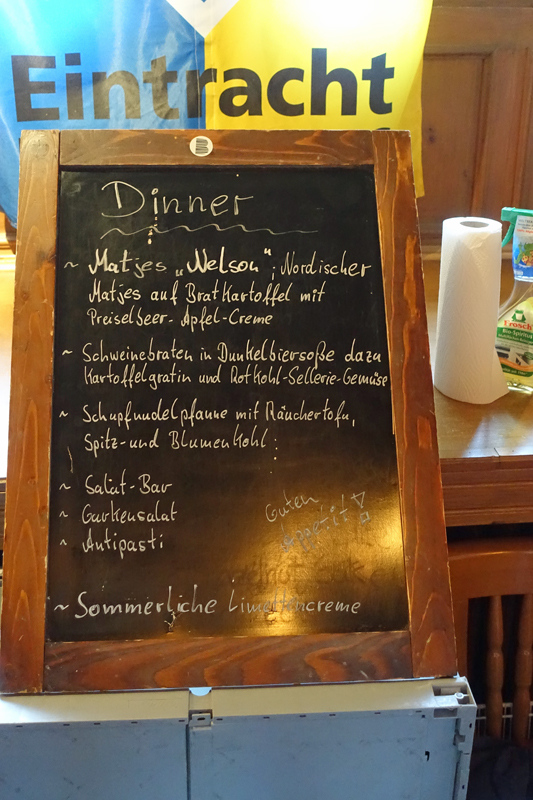 Eintracht
B
Dinner
~ Matjes „Nelson“; Nordischer
Matjes auf Bratkartoffel mit
Preiselbeer-Apfel-Creme
~ Schweinebraten in Dunkelbiersoße dazu
Kartoffelgratin und Rotkohl-Sellerie-Gemüse
~ Schupfnudelpfanne mit Räuchertofu,
Spitz- und Blumenkohl
~ Salat-Bar
~ Gurkensalat
~ Antipasti
Guten
Appetit!
~ Sommerliche Limettencreme
Frosch
Bio-Spiritus